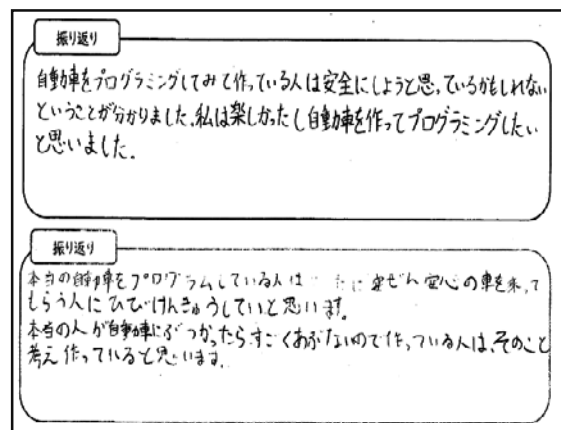 振り返り
自動車をプログラミングしてみて作っている人は安全にしようと思っているかもしれない
ということが分かりました。私は楽しかったし自動車を作ってプログラミングしたい
と思いました。
振り返り
本当の自動車をプログラムしている人は 安ぜん安心の車を
もらう人にひびけんきゅうしていと思います。
本当の人が自動車にぶつかったらすごくあぶないので作っている人は、そのこと
考え作っていると思います。